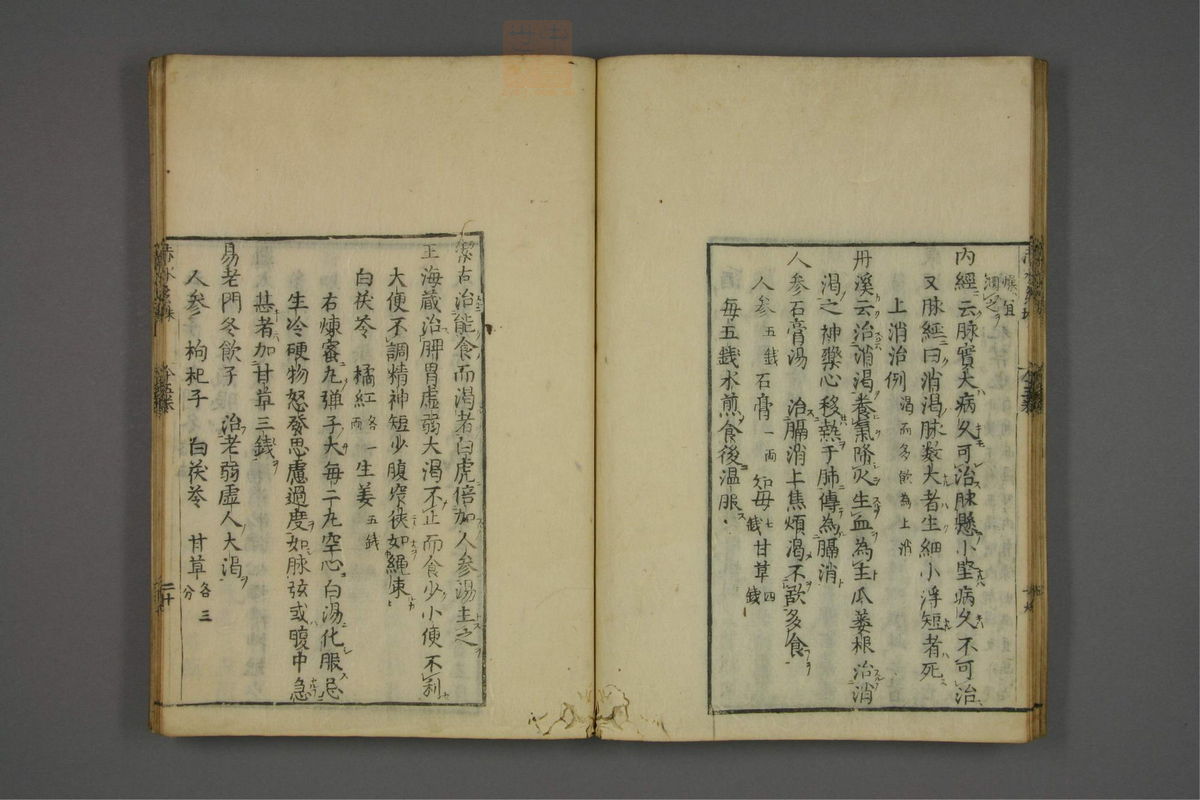 燥宜
潤之
內經云脉實大病久可治脉懸小堅病久不可治
又脉經曰消渴脉数大者生細小浮短者死
上消治例 渴而多飲為上消
丹溪云治消渴養氣降火生血為主瓜蔞根治消
渴之神藥心移熱于肺傳為膈消
人参石膏湯 治膈消上焦煩渴不欲多食
人参五錢石膏一兩 知母七錢甘草四錢
每五錢水煎食後温服
潔古治能食而渴者白虎倍加人参湯主之
王海蔵治脾胃虚弱大渴不止而食少小便不利
大便不調精神短少腹窄狹如繩束
白茯苓 橘紅各一兩 生姜五錢
右煉蜜丸弹子大每二丸空心白湯化服忌
生冷硬物怒發思慮過度如脉弦或腹中急
甚者加甘草三錢
易老門冬飲子 治老弱虚人大渴
人参 枸杞子 白茯苓 甘草各三分
赤水玄珠 二十